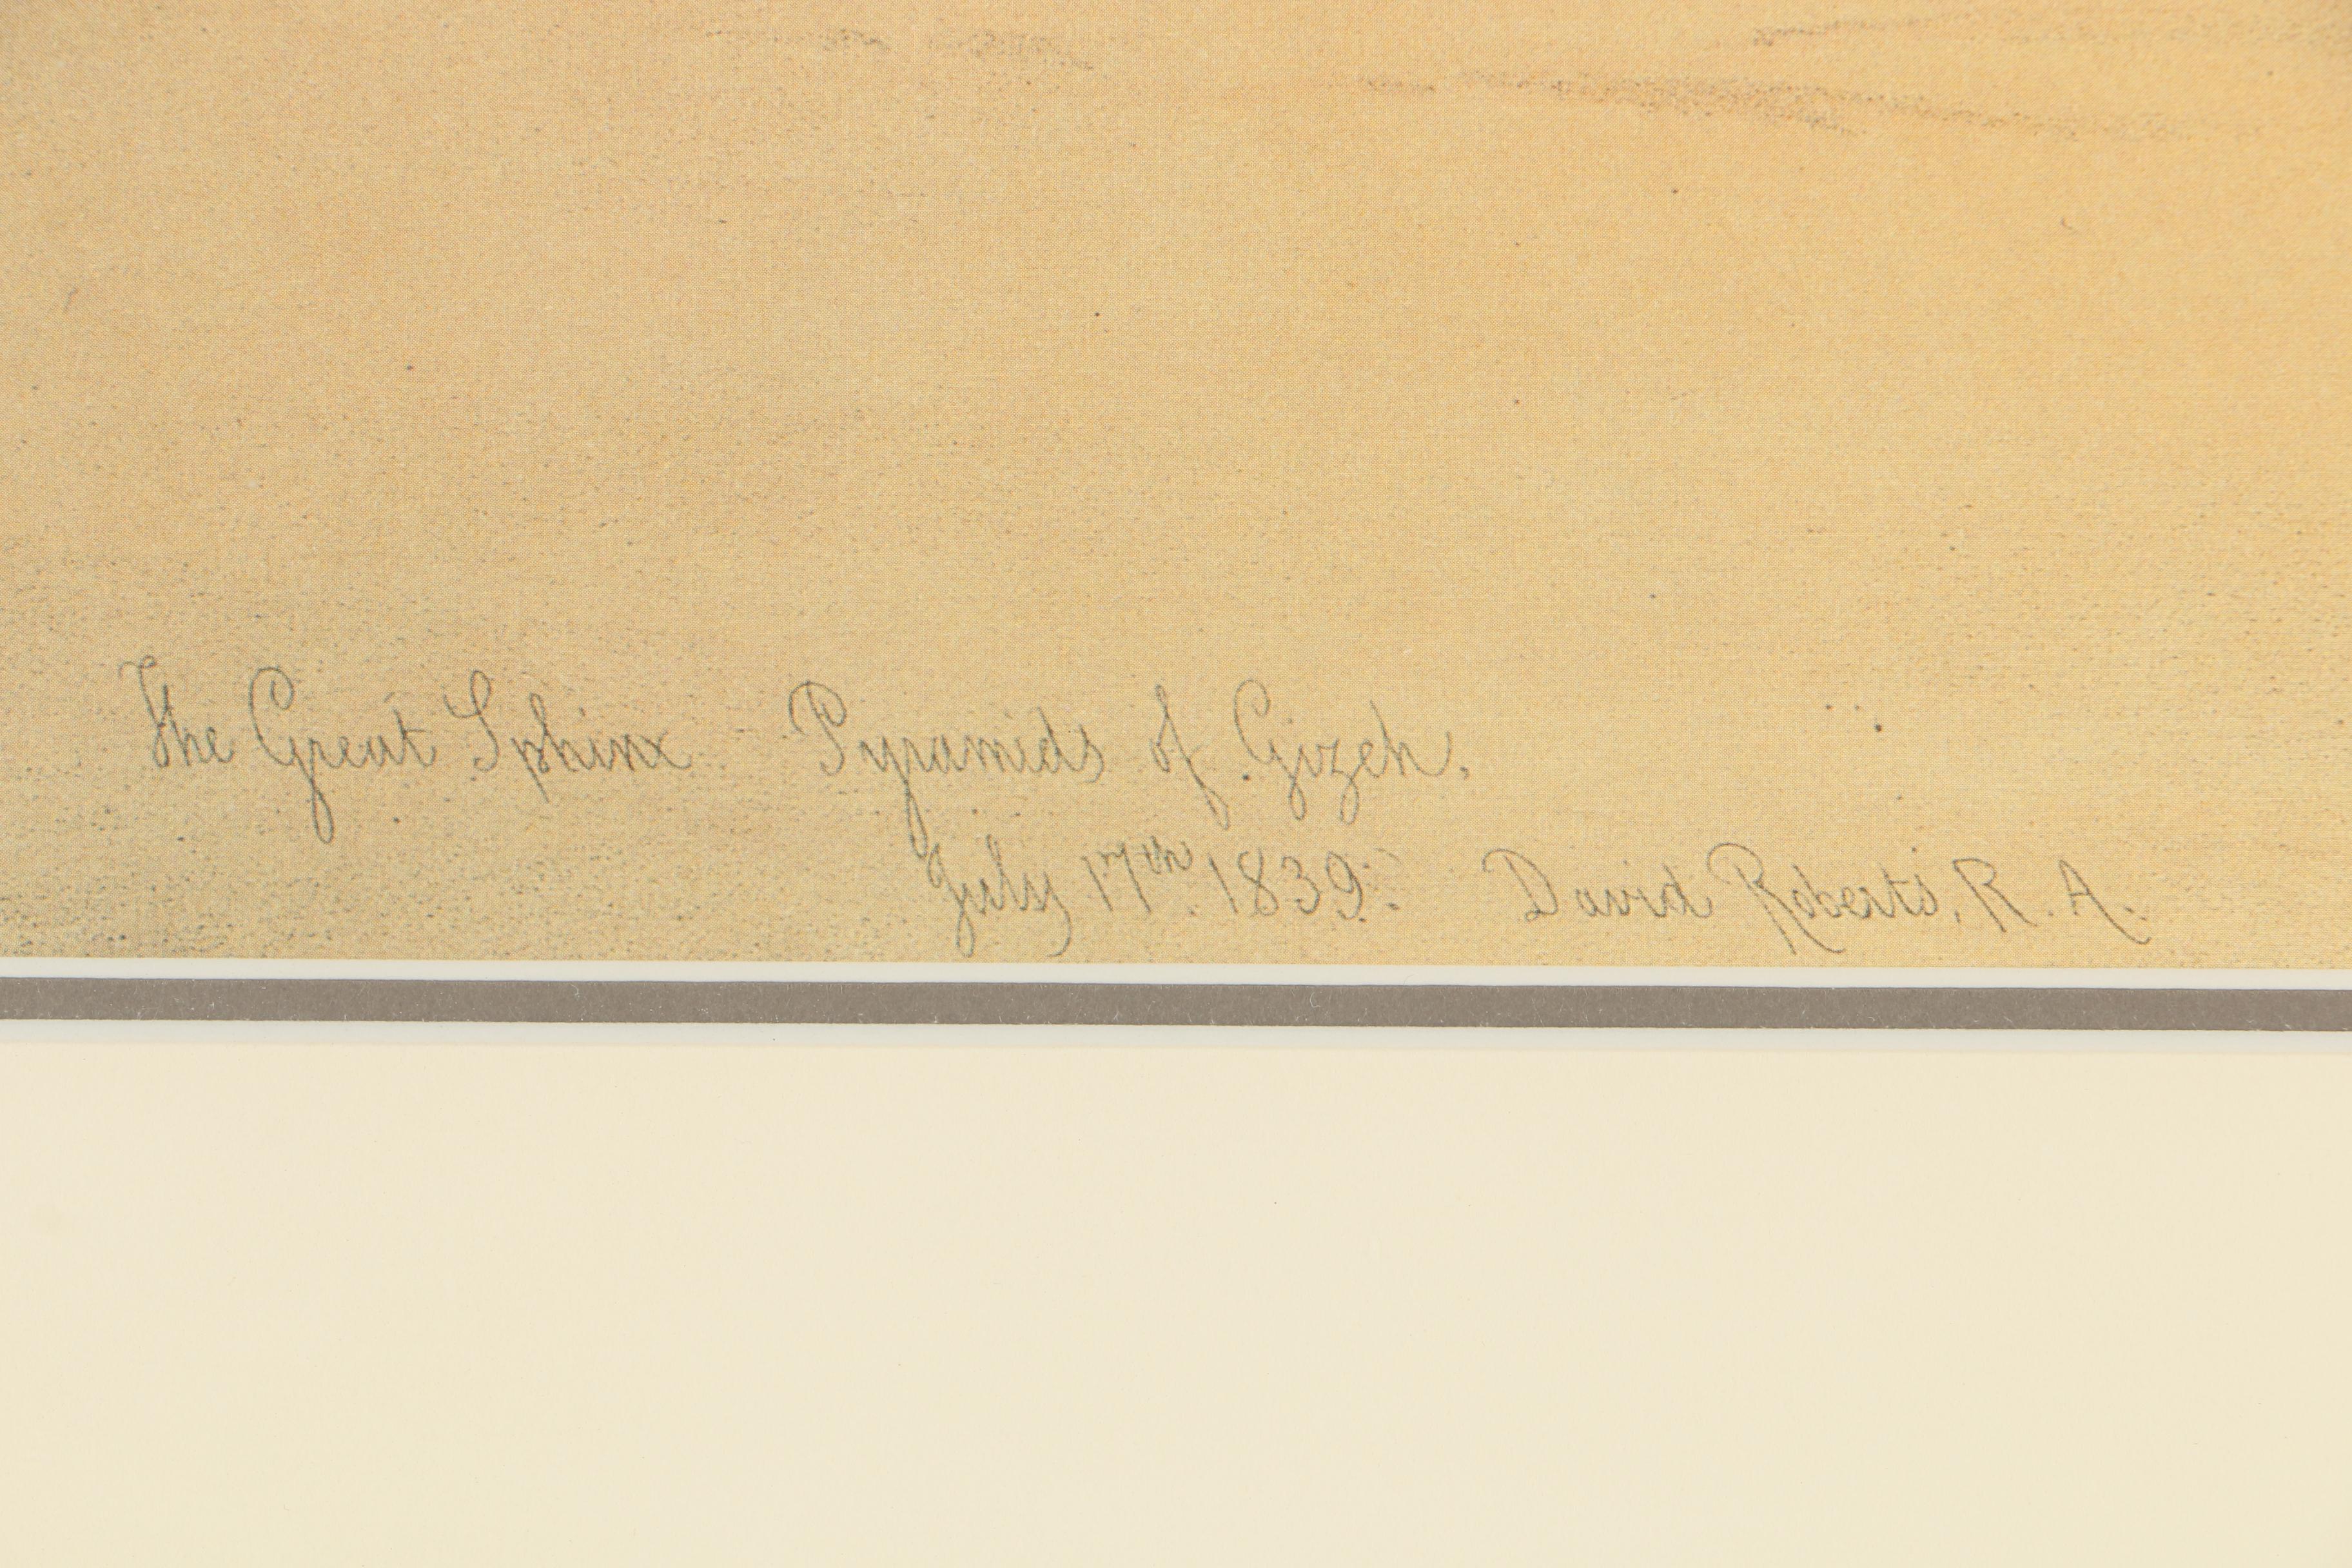 The Great Sphinx Pyramids of Gizeh.
July 17th. 1839. David Roberts, R. A.